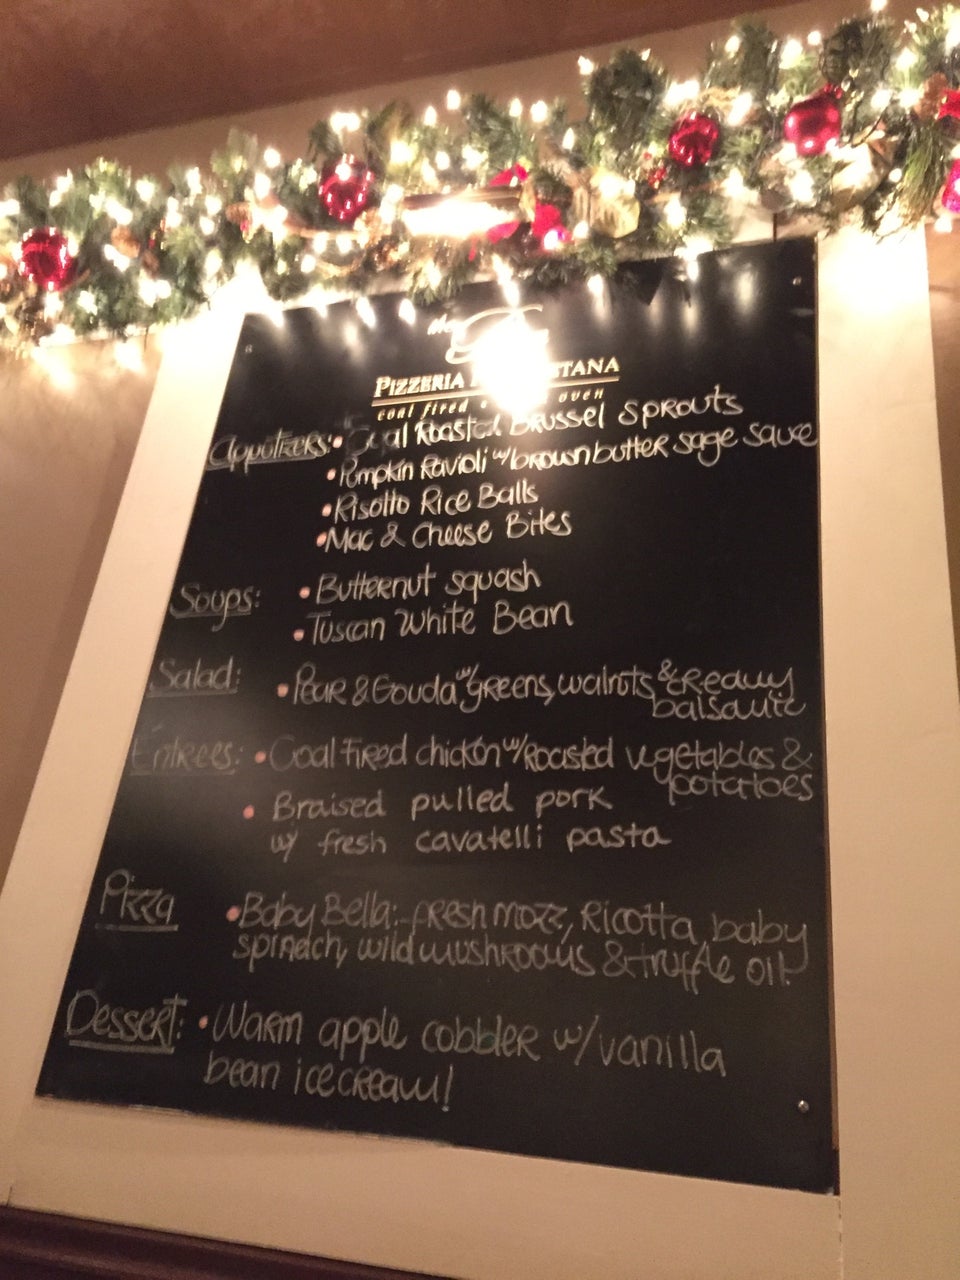 the
PIZZERIA
coal fired oven
Appetizers: • Coal Roasted Brussel Sprouts
• Pumpkin Ravioli w/ brown butter sage sauce
• Risotto Rice Balls
• Mac & Cheese Bites
Soups: • Butternut squash
• Tuscan White Bean
Salad: • Pear & Gouda w/ greens, walnuts & creamy
balsamic
Entrees: • Coal Fired chicken w/ Roasted vegetables &
potatoes
• Braised pulled pork
w/ fresh cavatelli pasta
Pizza • Baby Bella: fresh mozz, Ricotta, baby
spinach, wild mushrooms & truffle oil
Dessert: • Warm apple cobbler w/ vanilla
bean ice cream!